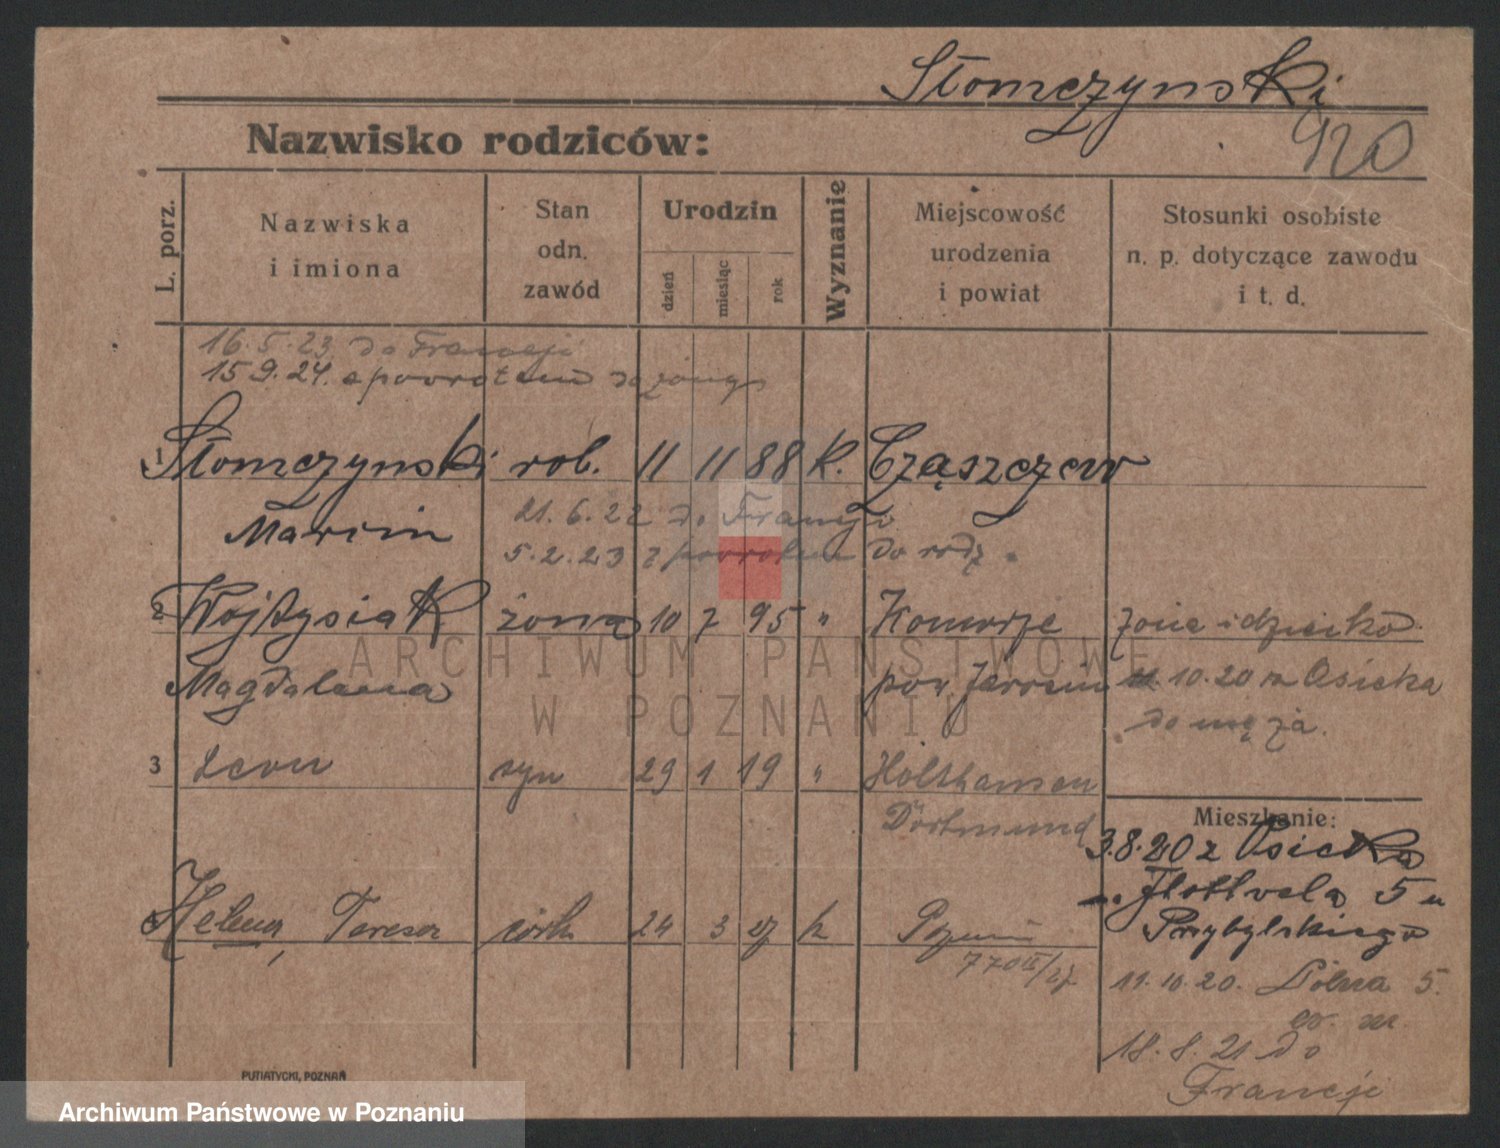 Słomczynski
920
Nazwisko rodziców:
L. porz.
Nazwiska
i imiona
Stan
odn.
zawód
Urodzin
dzień
miesiąc
rok
Wyznanie
Miejscowość
urodzenia
i powiat
Stosunki osobiste
n. p. dotyczące zawodu
i t. d.
16.5.23 do Francji
15 9.24. z powrotem do żony
1 Słomczynski rob. 11 11 88 k. Cząszczew
Marcin
21.6.22 do Francji
5.2.23 z powrotem do rodz.
2 Wojtysiak żona 10 7 95 " Komorze
żona i dziecko
Magdalena
pow. Jarocin
11.10.20 z Osieka
do męża.
3 Leon syn 29 1 19 " Holthausen
Dortmund
Mieszkanie:
3.8.20 z Osieka
Flottvela 5 u
Przybylskiego
4 Helena, Teresa córka 24 3 27 k Poznań
770 II/27
11.10.20. Polna 5.
18.8.21 do
Francji
PUTIATYCKI, POZNAŃ
ARCHIWUM PAŃSTWOWE
W POZNANIU
Archiwum Państwowe w Poznaniu